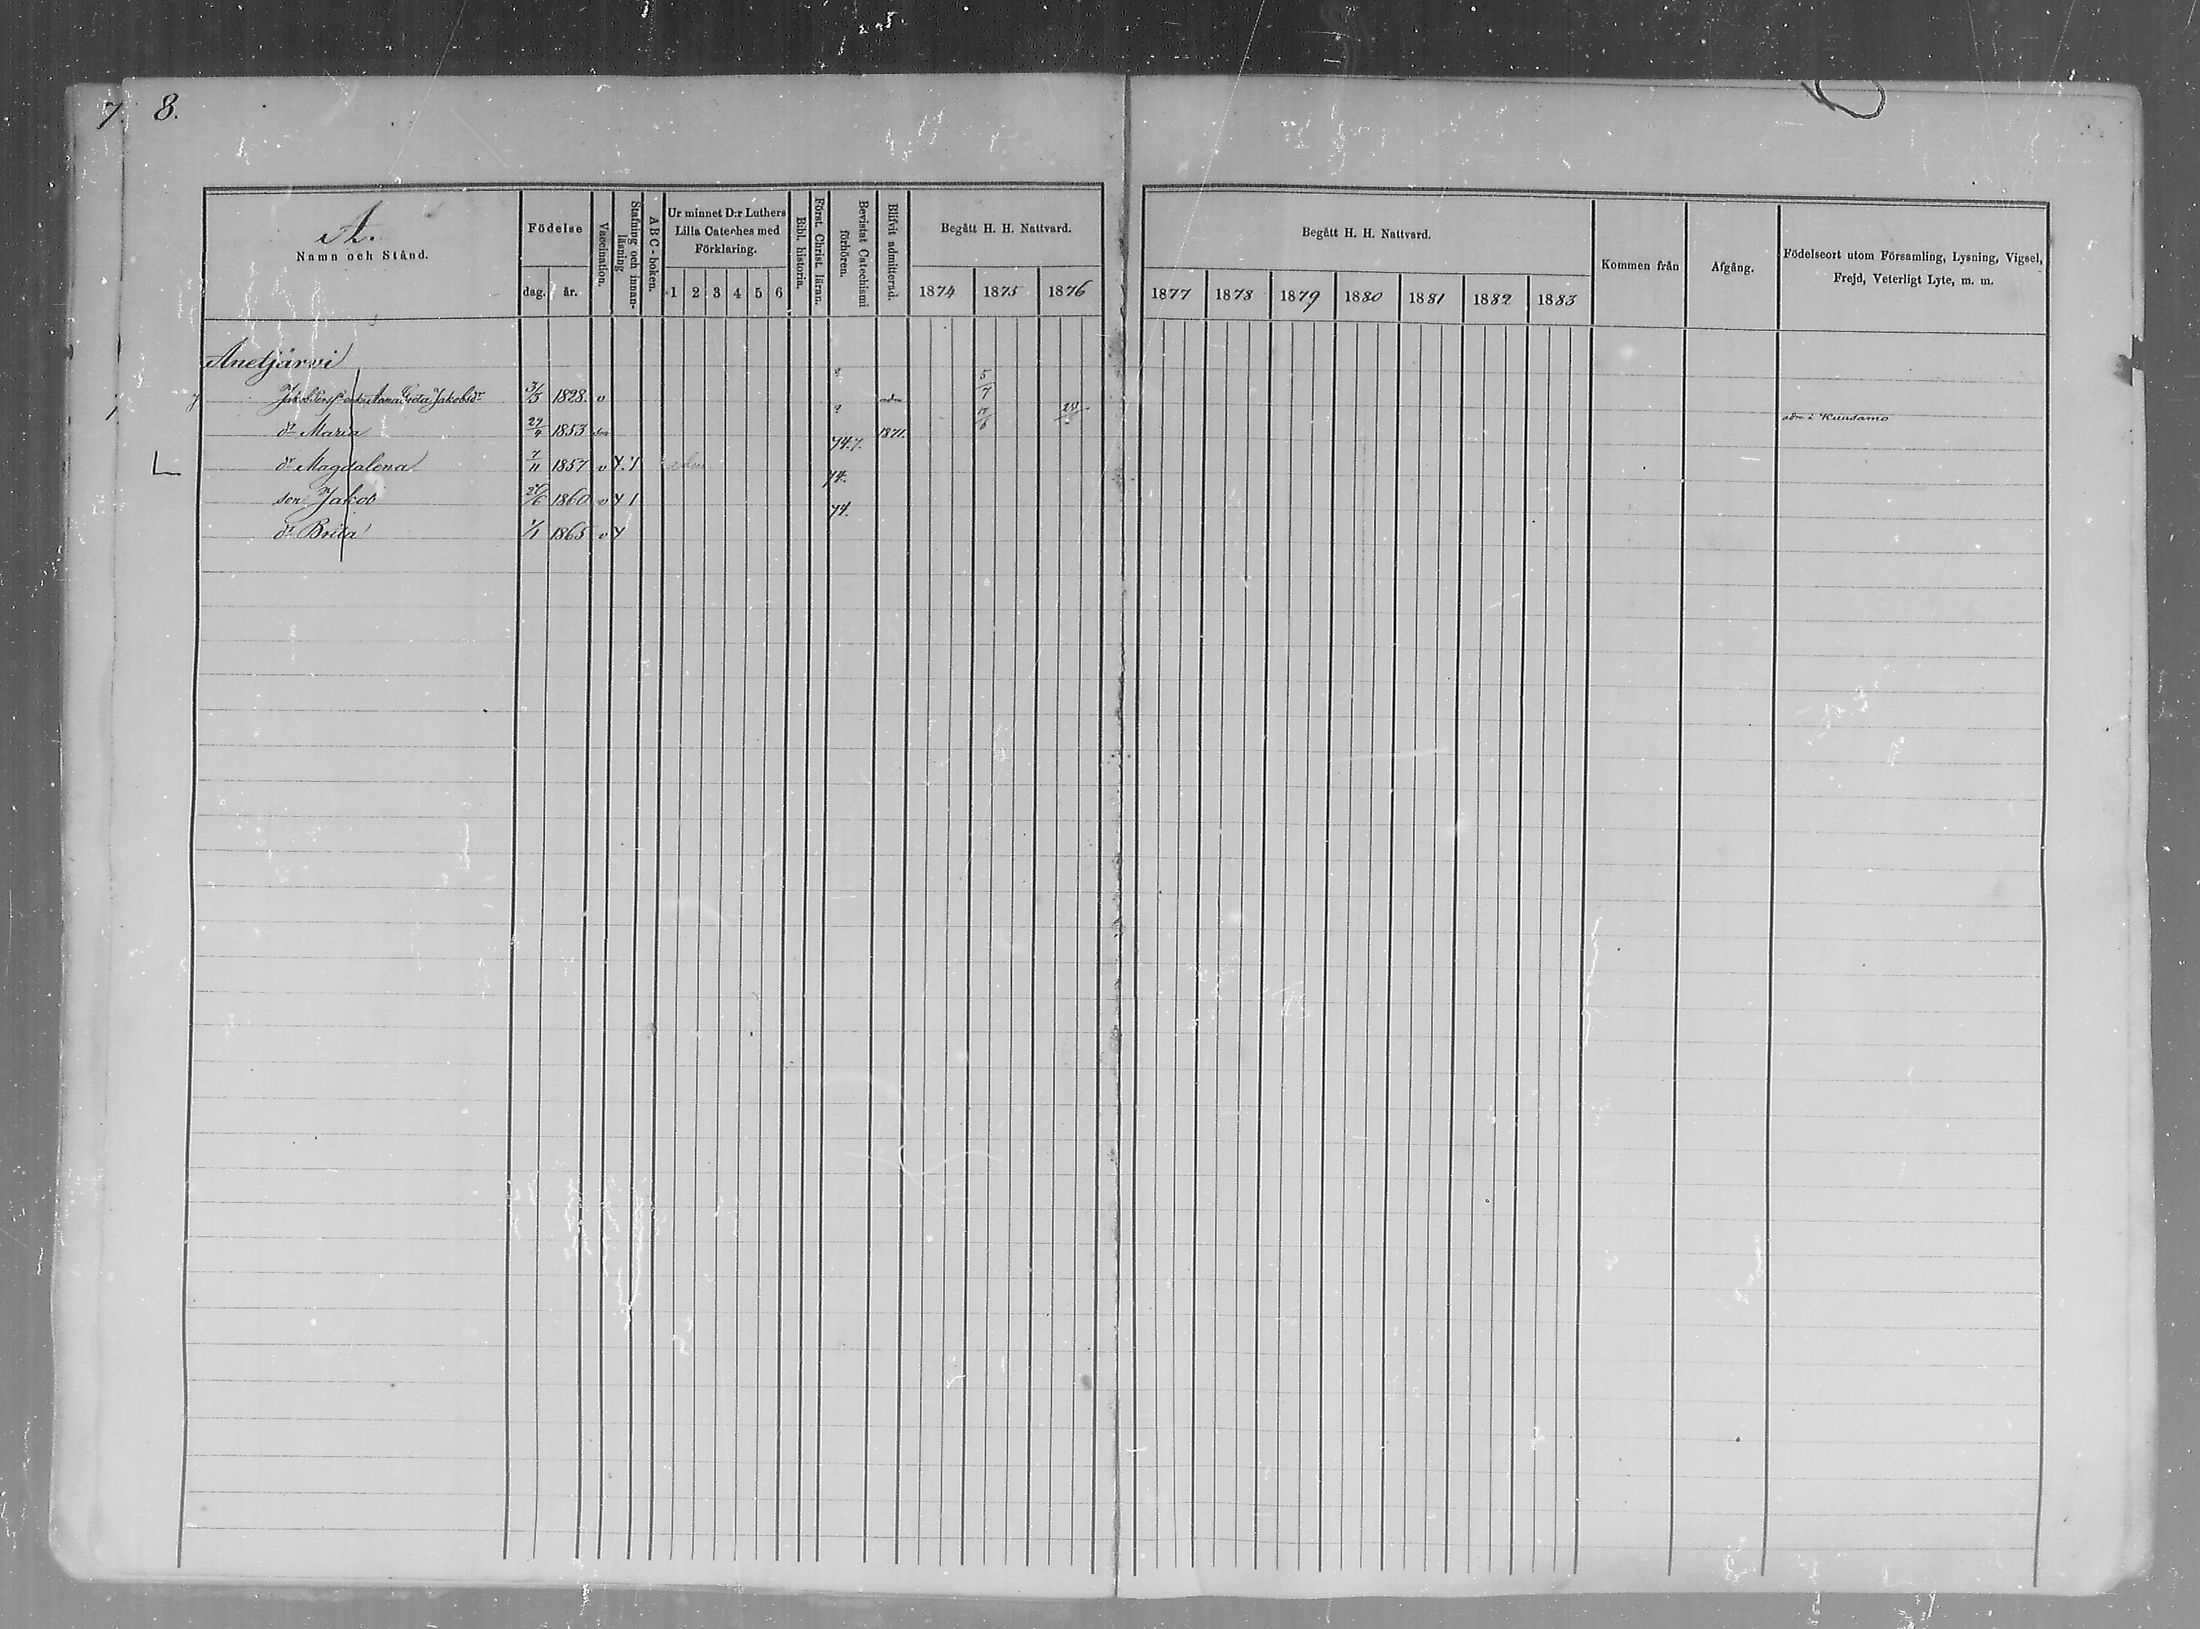 7. 8.
A.
Namn och Stånd.
Födelse
dag. år.
Vaccination.
Stafning och innan-läsning.
ABC-boken.
Ur minnet D:r Luthers Lilla Cateches med Förklaring.
1 2 3 4 5 6
Bibl. historia.
Först. Christ. läran.
Bevistat Catechismi förhören.
Blifvit admitterad.
Begått H. H. Nattvard.
1874 1875 1876
Begått H. H. Nattvard.
1877 1878 1879 1880 1881 1882 1883
Kommen från
Afgång.
Födelseort utom Församling, Lysning, Vigsel, Frejd, Veterligt Lyte, m. m.
Anetjärvi
Anna Greta Jakobsdr 3/3 1828 v 5/7
dr Maria 27/4 1853 1871. 17/6 i Kuusamo
dr Magdalena 7/11 1857 v Y.1 74.
son Jakob 1860 v Y 1 74.
dr Brita 1/1 1865 v Y 74.